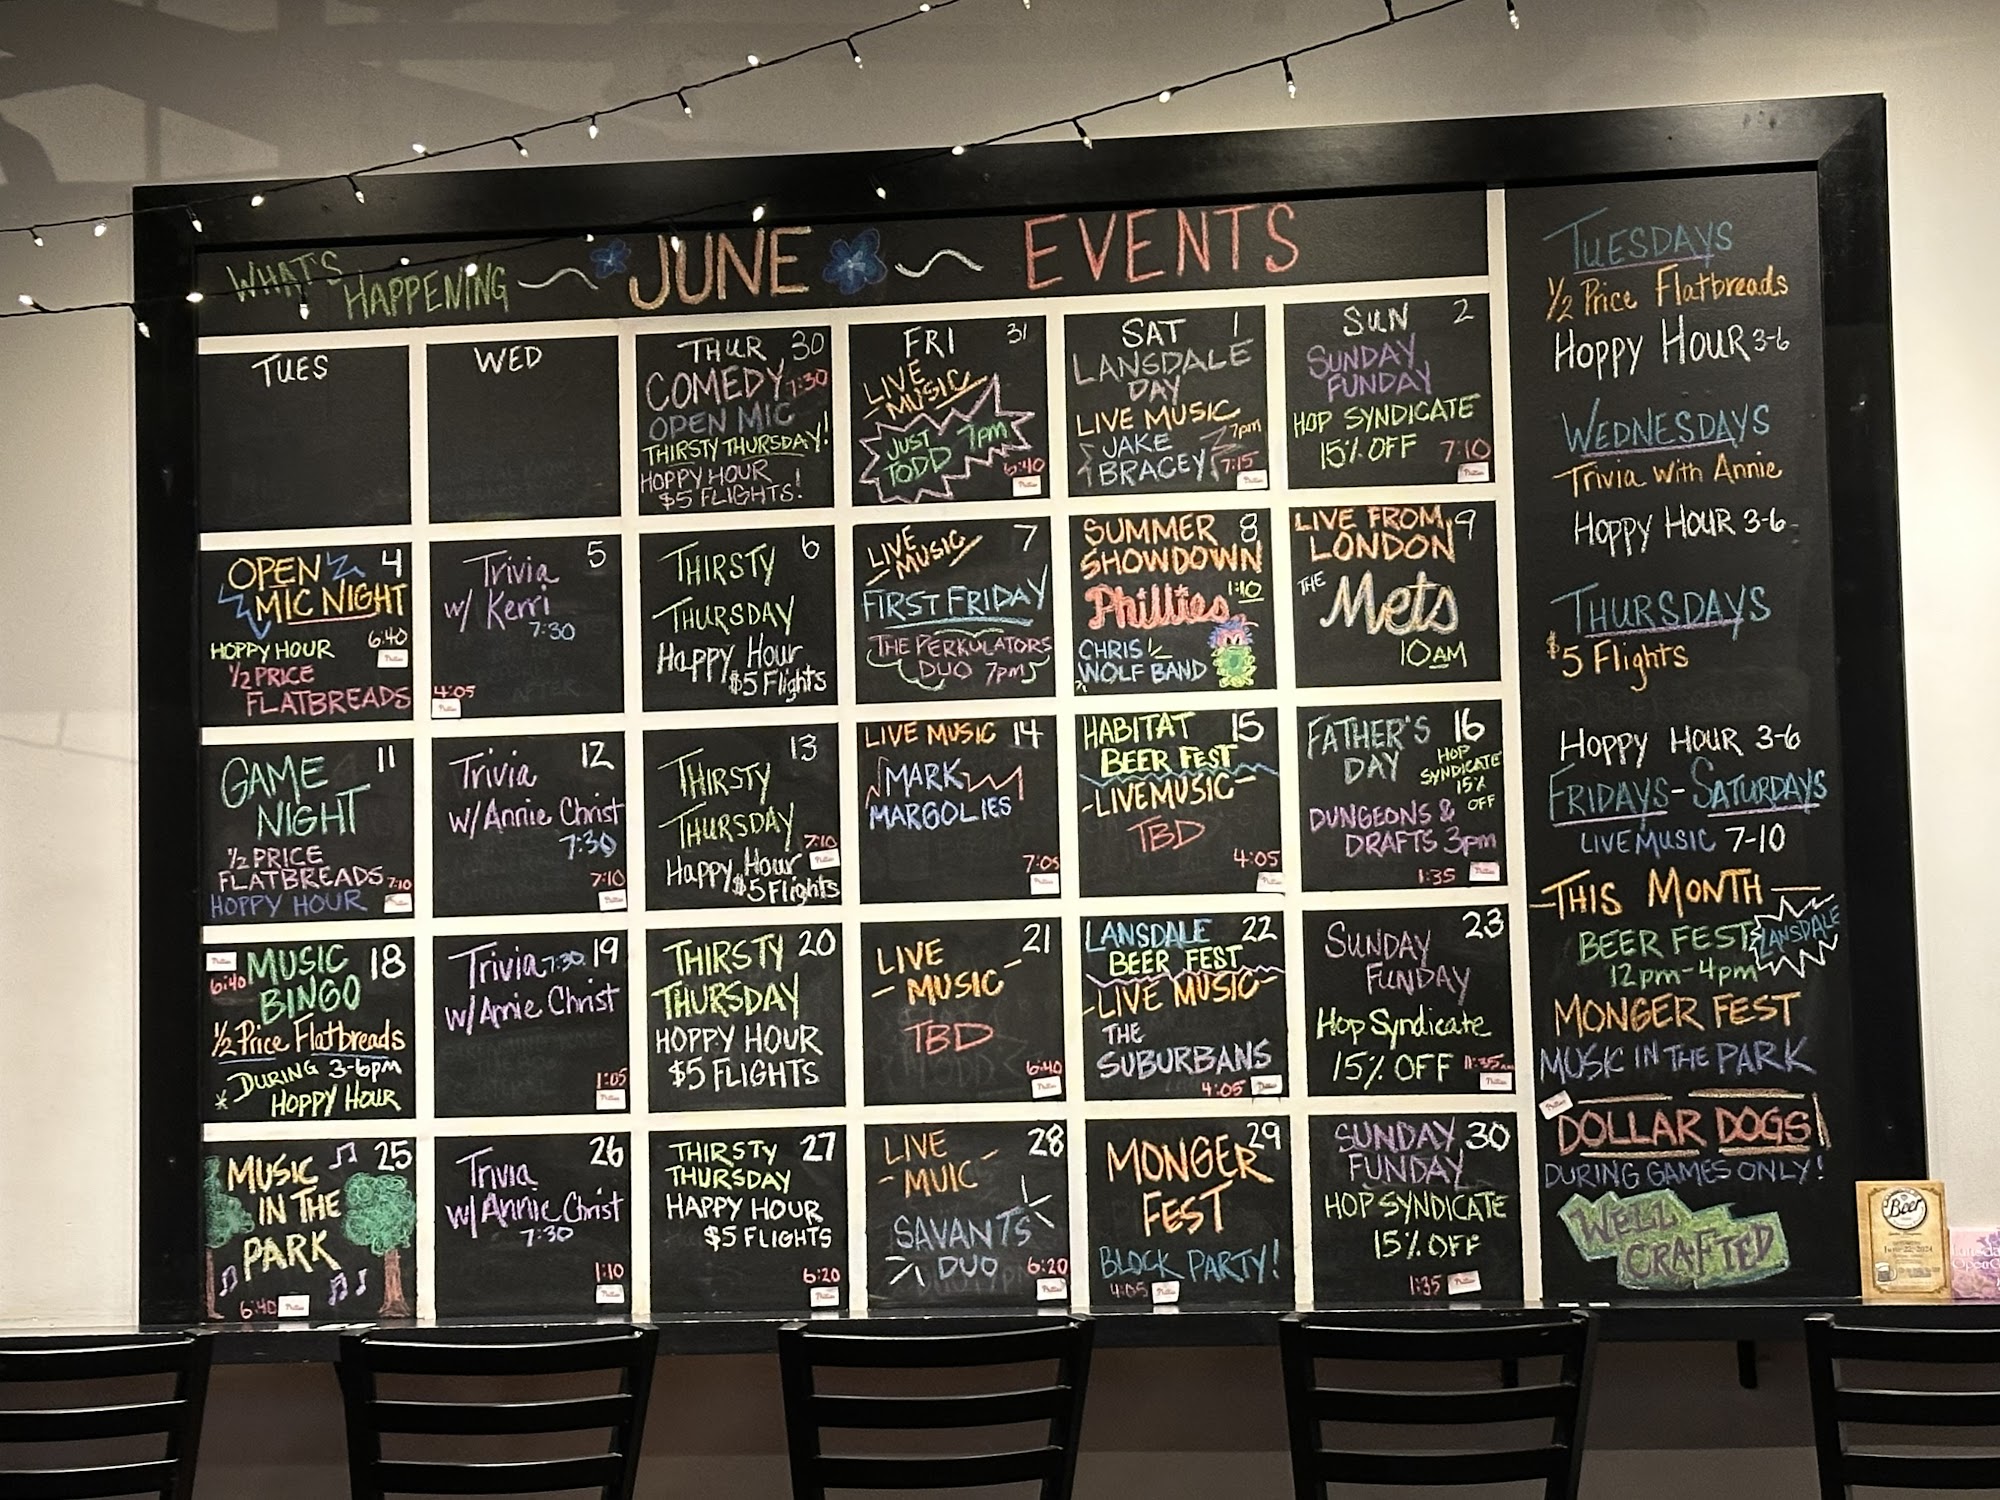 WHAT'S HAPPENING JUNE EVENTS
TUES
WED
THUR 30
COMEDY 7:30
OPEN MIC
THIRSTY THURSDAY!
HOPPY HOUR
$5 FLIGHTS!
FRI 31
LIVE
MUSIC
JUST TODD 7pm
6:40
Phillies
SAT 1
LANSDALE
DAY
LIVE MUSIC
7pm
JAKE
BRACEY 7:15
Phillies
SUN 2
SUNDAY
FUNDAY
HOP SYNDICATE
15% OFF 7:10
Phillies
OPEN 4
MIC NIGHT
HOPPY HOUR 6:40
Phillies
1/2 PRICE
FLATBREADS
Trivia 5
w/ Kerri
7:30
4:05
Phillies
THIRSTY 6
THURSDAY
Happy Hour
$5 Flights
LIVE 7
MUSIC
FIRST FRIDAY
THE PERKULATORS
DUO 7pm
SUMMER 8
SHOWDOWN
1:10
Phillies
CHRIS
WOLF BAND
LIVE FROM 9
LONDON
THE
Mets
10AM
GAME 11
NIGHT
1/2 PRICE
FLATBREADS 7:10
HOPPY HOUR
Phillies
Trivia 12
w/ Annie Christ
7:30
7:10
Phillies
THIRSTY 13
THURSDAY 7:10
Phillies
Happy Hour
$5 Flights
LIVE MUSIC 14
MARK
MARGOLIES
7:05
Phillies
HABITAT 15
BEER FEST
-LIVE MUSIC-
TBD
4:05
Phillies
FATHER'S 16
DAY
HOP
SYNDICATE
15%
OFF
DUNGEONS &
DRAFTS 3pm
1:35
Phillies
Phillies
6:40
MUSIC 18
BINGO
1/2 Price Flatbreads
* DURING 3-6pm
HOPPY HOUR
Trivia 7:30 19
w/ Annie Christ
1:05
Phillies
THIRSTY 20
THURSDAY
HOPPY HOUR
$5 FLIGHTS
LIVE 21
MUSIC
TBD
6:40
Phillies
LANSDALE 22
BEER FEST
-LIVE MUSIC-
THE
SUBURBANS
4:05
Phillies
SUNDAY 23
FUNDAY
Hop Syndicate
15% OFF 11:35AM
Phillies
MUSIC 25
IN THE
PARK
6:40
Phillies
Trivia 26
w/ Annie Christ
7:30
1:10
Phillies
THIRSTY 27
THURSDAY
HAPPY HOUR
$5 FLIGHTS
6:20
Phillies
LIVE 28
MUIC
SAVANTS
DUO
6:20
Phillies
MONGER 29
FEST
BLOCK PARTY!
4:05
Phillies
SUNDAY 30
FUNDAY
HOP SYNDICATE
15% OFF
1:35
Phillies
TUESDAYS
1/2 Price Flatbreads
HOPPY HOUR 3-6
WEDNESDAYS
Trivia With Annie
HOPPY HOUR 3-6
THURSDAYS
$5 Flights
HOPPY HOUR 3-6
FRIDAYS-SATURDAYS
LIVE MUSIC 7-10
THIS MONTH
BEER FEST LANSDALE
12pm-4pm
MONGER FEST
MUSIC IN THE PARK
Phillies
DOLLAR DOGS!
DURING GAMES ONLY!
WELL
CRAFTED
Beer